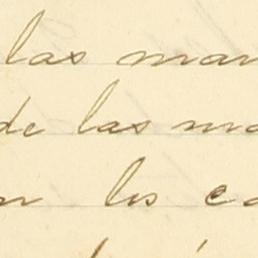 las man
de las ma
n los ca